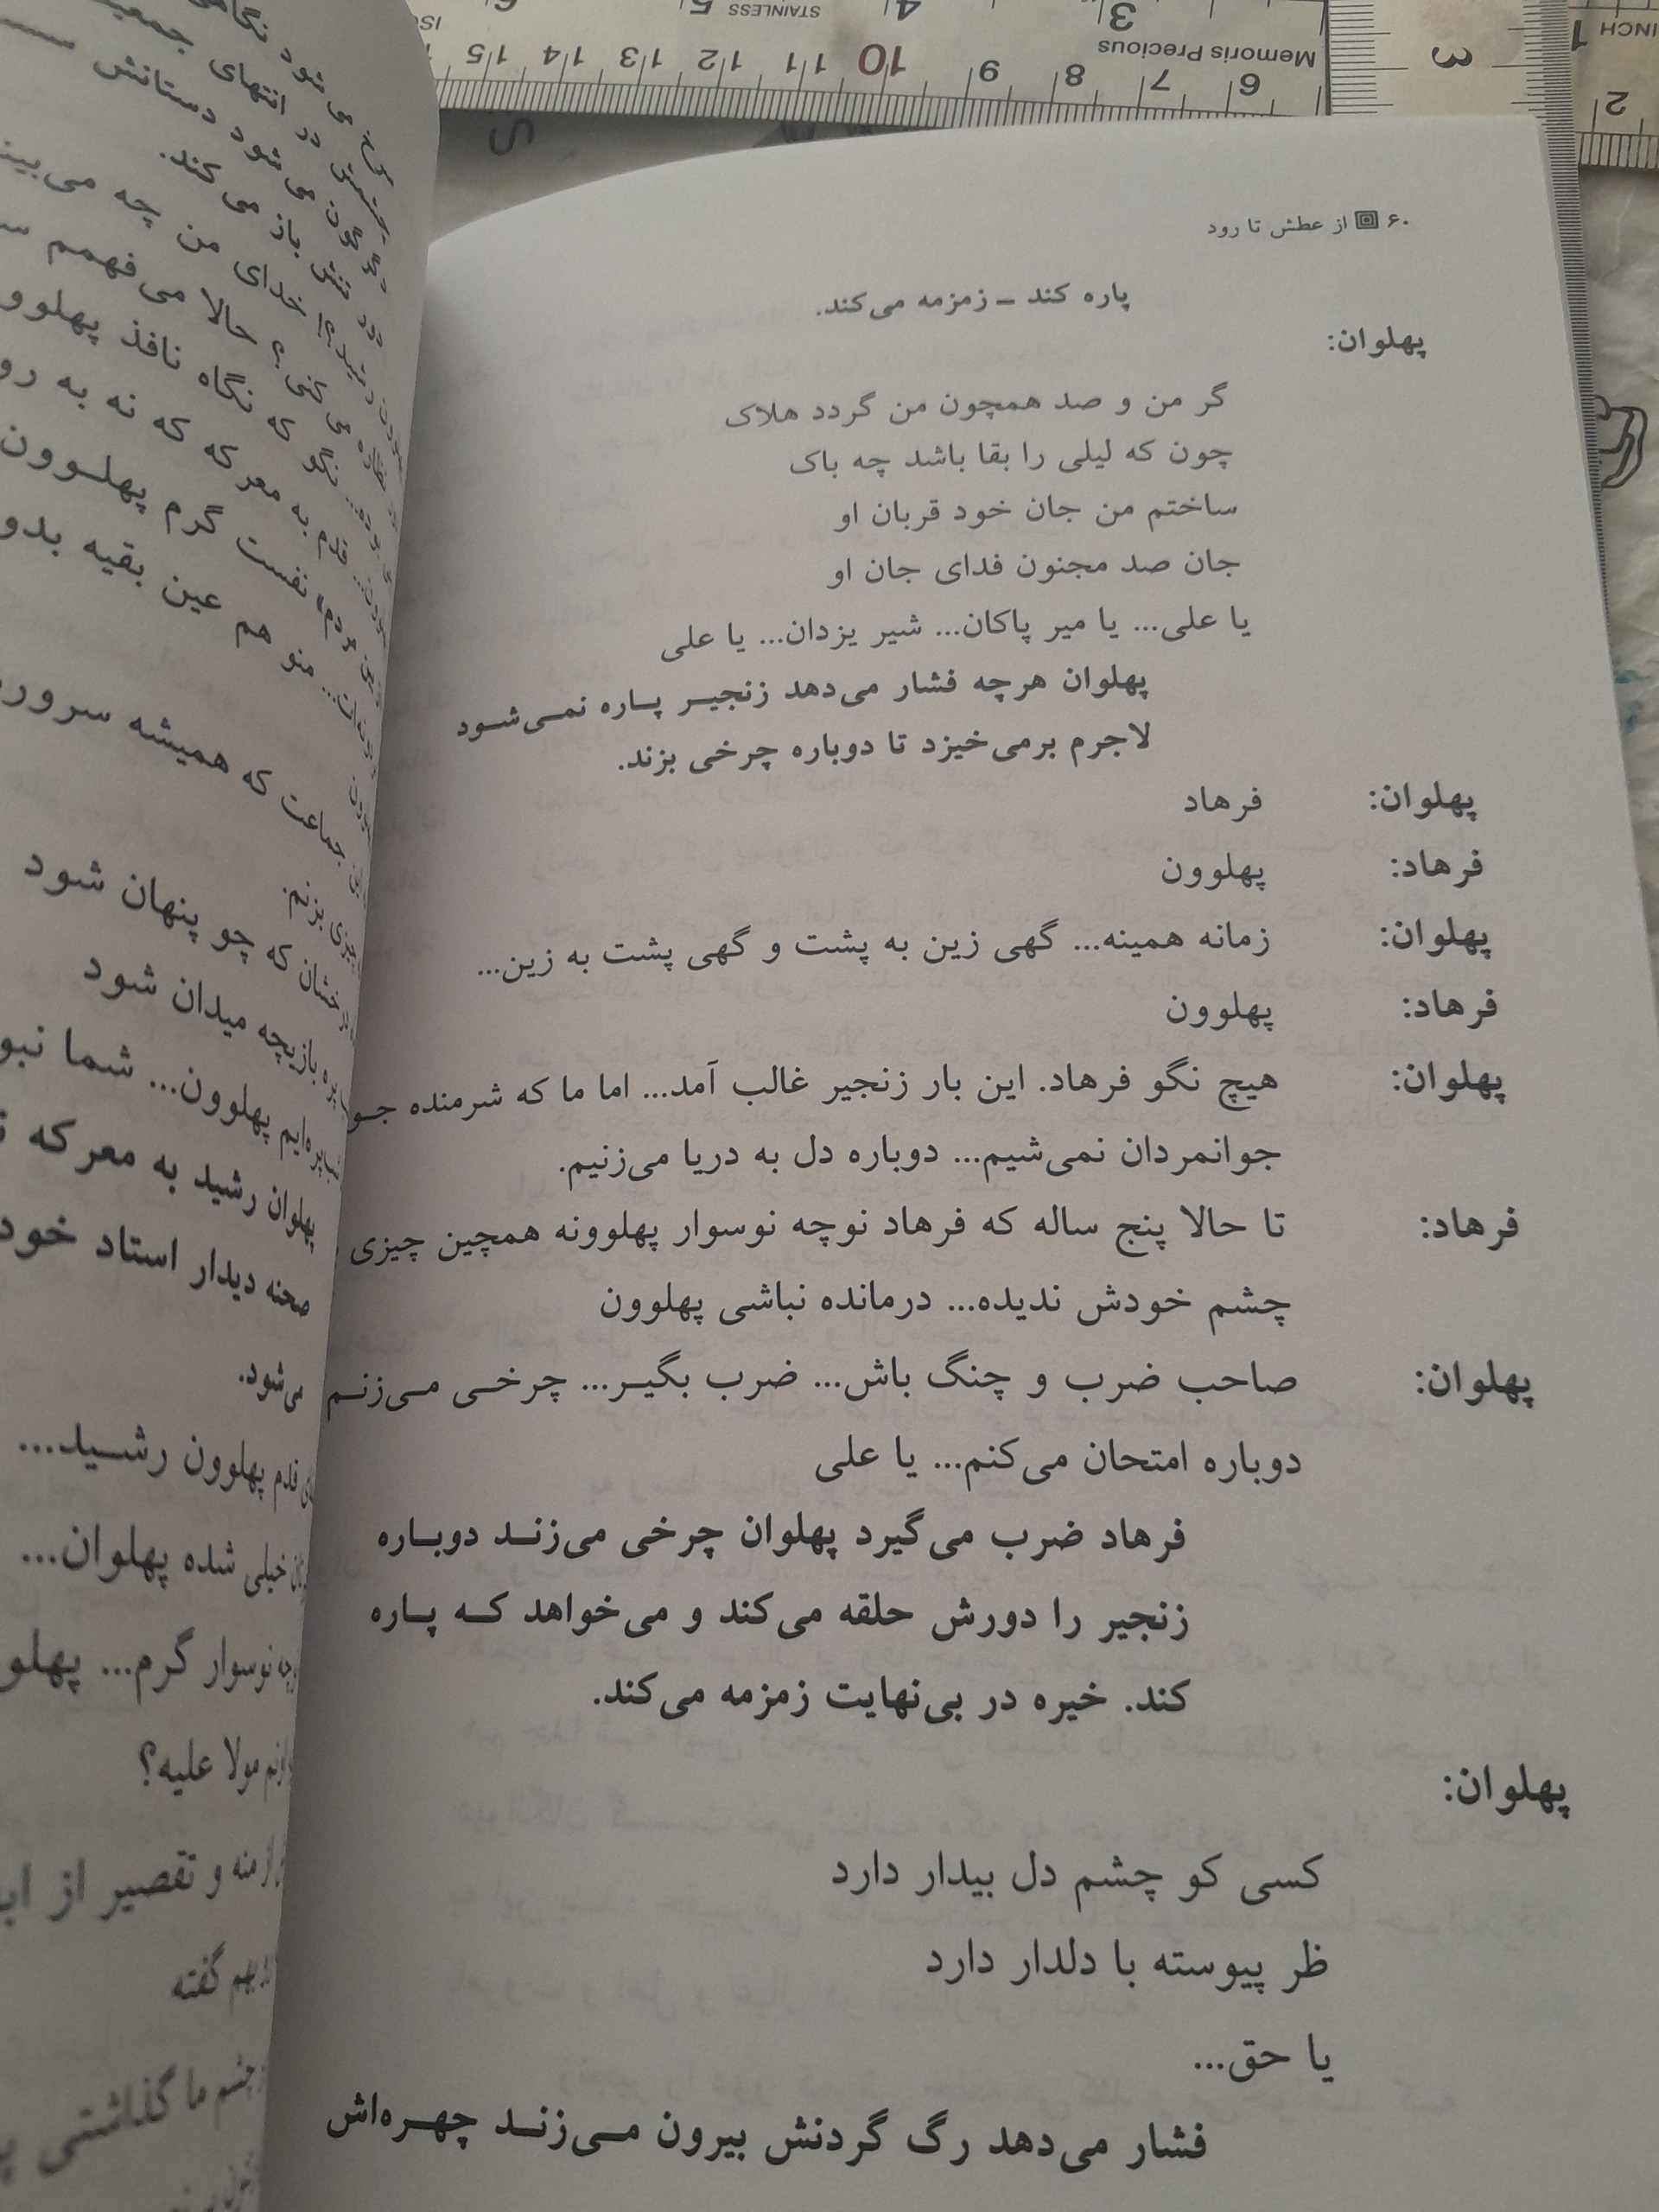 ۶۰ از عطش تا رود
پاره کند ــ زمزمه می‌کند.
پهلوان:
گر من و صد همچون من گردد هلاک
چون که لیلی را بقا باشد چه باک
ساختم من جان خود قربان او
جان صد مجنون فدای جان او
یا علی... یا میر پاکان... شیر یزدان... یا علی
پهلوان هرچه فشار می‌دهد زنجیر پاره نمی‌شود
لاجرم برمی‌خیزد تا دوباره چرخی بزند.
پهلوان: فرهاد
فرهاد: پهلوون
پهلوان: زمانه همینه... گهی زین به پشت و گهی پشت به زین...
فرهاد: پهلوون
پهلوان: هیچ نگو فرهاد. این بار زنجیر غالب آمد... اما ما که شرمنده جو
جوانمردان نمی‌شیم... دوباره دل به دریا می‌زنیم.
فرهاد: تا حالا پنج ساله که فرهاد نوچه نوسوار پهلوونه همچین چیزی
چشم خودش ندیده... درمانده نباشی پهلوون
پهلوان: صاحب ضرب و چنگ باش... ضرب بگیر... چرخی می‌زنم
دوباره امتحان می‌کنم... یا علی
فرهاد ضرب می‌گیرد پهلوان چرخی می‌زند دوباره
زنجیر را دورش حلقه می‌کند و می‌خواهد که پاره
کند. خیره در بی‌نهایت زمزمه می‌کند.
پهلوان:
کسی کو چشم دل بیدار دارد
ظر پیوسته با دلدار دارد
یا حق...
فشار می‌دهد رگ گردنش بیرون می‌زند چهره‌اش
می شود نگاه
در انتهای جمعی
می‌شود دستانش
باز می کند.
خدای من چه می‌بین
می کنی؟ حالا می‌فهمم
نگو که نگاه نافذ پهلوو
قدم به معرکه که نه به رو
نفست گرم پهلوون
منو هم عین بقیه بدو
جماعت که همیشه سرور
چیزی بزنم.
که چو پنهان شود
بازیچه میدان شود
پهلوون... شما نبو
پهلوان رشید به معرکه
صحنه دیدار استاد خود
می‌شود.
قدم پهلوون رشید...
خیلی شده پهلوان...
نوسوار گرم... پهلو
مولا علیه؟
از منه و تقصیر از
بهم گفته
چشم ما گذاشتی
6 7 8 9 10 11 12 13 14 15
Memoris Precious
3 4 5 6
STAINLESS
INCH
1
2
3